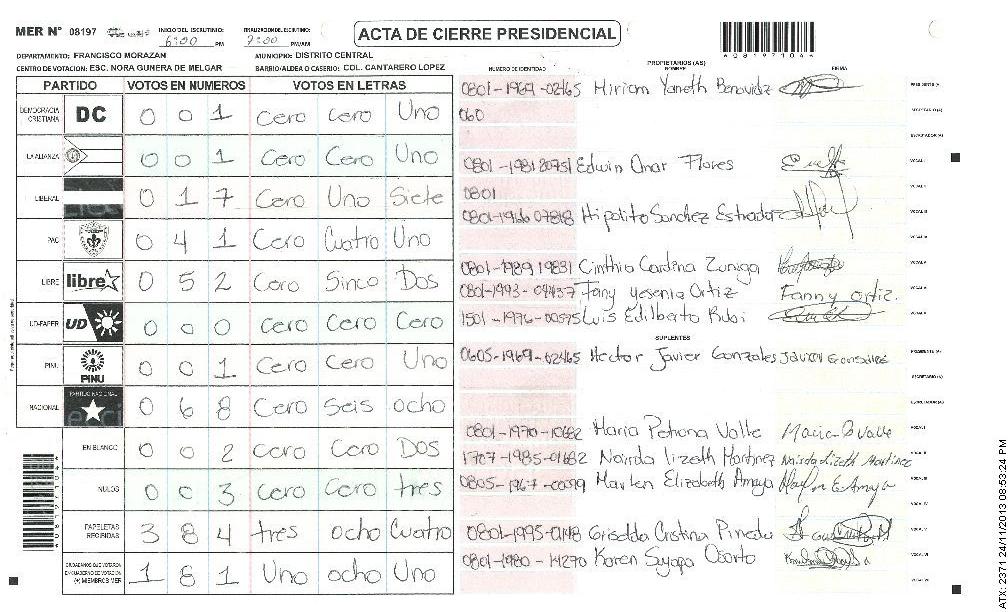 MER N° 08197 INICIO DEL ESCRUTINIO: 6:00 PM FINALIZACION DEL ESCRUTINIO: 7:00 PM/AM ACTA DE CIERRE PRESIDENCIAL
DEPARTAMENTO: FRANCISCO MORAZAN MUNICIPIO: DISTRITO CENTRAL
CENTRO DE VOTACION: ESC. NORA GUNERA DE MELGAR BARRIO/ALDEA O CASERIO: COL. CANTARERO LOPEZ
PARTIDO VOTOS EN NUMEROS VOTOS EN LETRAS
DEMOCRACIA CRISTIANA DC 0 0 1 Cero Cero Uno
LA ALIANZA 0 0 1 Cero Cero Uno
LIBERAL 0 1 7 Cero Uno Siete
PAC 0 4 1 Cero Cuatro Uno
LIBRE libre 0 5 2 Cero Sinco Dos
UD-FAPER UD 0 0 0 Cero Cero Cero
PINU PINU 0 0 1 Cero Cero Uno
NACIONAL PARTIDO NACIONAL 0 6 8 Cero Seis ocho
EN BLANCO 0 0 2 Cero Cero Dos
NULOS 0 0 3 Cero Cero tres
PAPELETAS RECIBIDAS 3 8 4 tres ocho Cuatro
CIUDADANOS QUE VOTARON EN CUADERNO DE VOTACION (+) MIEMBROS MER 1 8 1 Uno ocho Uno
PROPIETARIOS (AS)
NUMERO DE IDENTIDAD NOMBRE FIRMA
0801-1969-02465 Miriam Yaneth Benavidz PRESIDENTE (A)
060 SECRETARIO (A)
ESCRUTADOR (A)
0801-1981 20751 Edwin Omar Flores VOCAL I
0801 VOCAL II
0801-1966 07818 Hipolito Sanchez Estrada VOCAL III
0801-1989 19831 Cinthia Carolina Zuniga
0801-1993-04437 Fany Yesenia Ortiz Fanny Ortiz.
1501-1976-00595 Luis Edilberto Rubi
SUPLENTES
0605-1969-02465 Hector Javier Gonzales Javier Gonzales PRESIDENTE (A)
SECRETARIO (A)
ESCRUTADOR (A)
0801-1970-10682 Maria Petrona Valle Maria P Valle VOCAL I
1707-1985-01682 Nairda lizeth Martinez Nairda Lizeth Martinez VOCAL II
0805-1967-00099 Marlen Elizabeth Amaya Marlen E Amaya VOCAL III
0801-1995-01148 Griselda Cristina Pineda
0801-1980-14270 Karen Suyapa Osorto
ATX: 2371 24/11/2013 08:53:24 PM